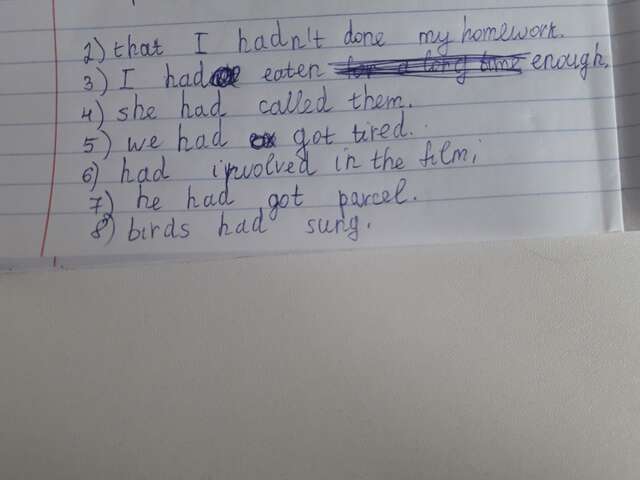 2) that I hadn't done my homework.
3) I had eaten for a long time enough.
4) she had called them.
5) we had got tired.
6) had involved in the film,
7) he had got parcel.
8) birds had sung.